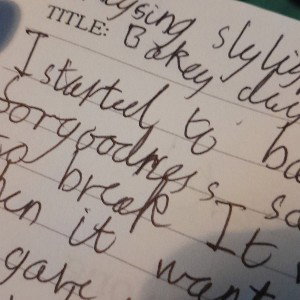 slylig
TITLE: Bakey day
I started to ba
sorgoodness sa
so break It
en it want
gave